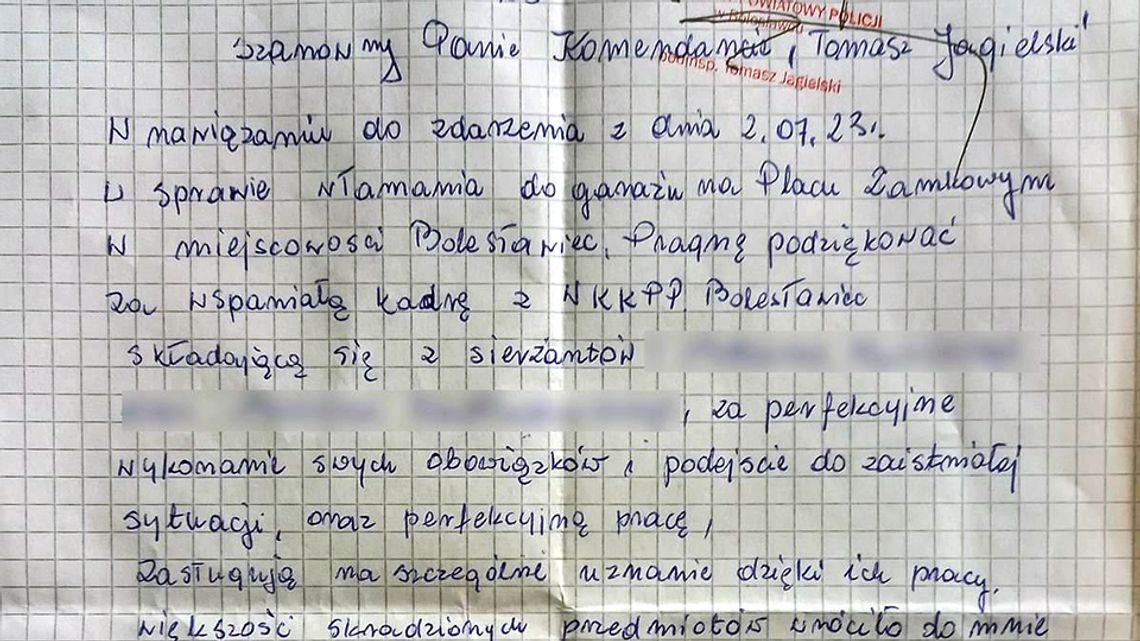 OWIATOWY POLICJI
w Bolesławcu
Szanowny Panie Komendancie, Tomasz Jagielski
podinsp. Tomasz Jagielski
W nawiązaniu do zdarzenia z dnia 2.07.23r.
w sprawie włamania do garażu na Placu Zamkowym
w miejscowości Bolesławiec, Pragnę podziękować
za wspaniałą kadrę z WKKPP. Bolesławiec
składającą się z sierżantów
, za perfekcyjne
wykonanie swych obowiązków i podejscie do zaistniałej
sytuacji, oraz perfekcyjną pracę,
Zasługują na szczególne uznanie dzięki ich pracy.
większość skradzionych przedmiotów wróciło do mnie